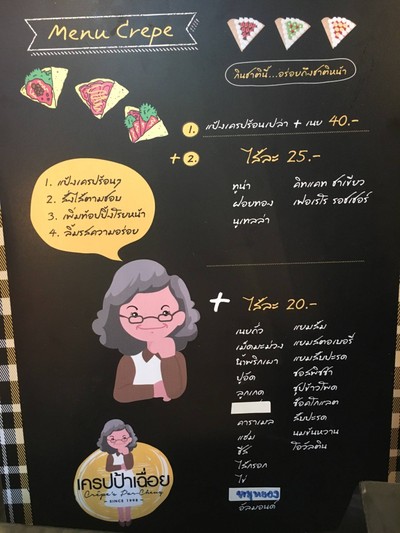 Menu Crepe
กินชาตินี้...อร่อยถึงชาติหน้า
1. แป้งเครปร้อนเปล่า + เนย 40.-
+ 2. ไส้ละ 25.-
ทูน่า
ฝอยทอง
นูเทลล่า
คิทแคท ชาเขียว
เฟอเรโร รอชเชอร์
1. แป้งเครปร้อนๆ
2. สั่งไส้ตามชอบ
3. เพิ่มท้อปปิ้งโรยหน้า
4. ลิ้มรสความอร่อย
+ ไส้ละ 20.-
เนยถั่ว
เม็ดมะม่วง
น้ำพริกเผา
ปูอัด
ลูกเกด
คาราเมล
แฮม
ชีส
ไส้กรอก
ไข่
อัลมอนด์
แยมส้ม
แยมสตอเบอรี่
แยมสับปะรด
ซอสพิซซ่า
ซุปข้าวโพด
ช็อคโกแลต
สับปะรด
นมข้นหวาน
โอวัลติน
เครปป้าเฉื่อย
Crêpe's Par-Cheuy
SINCE 1998